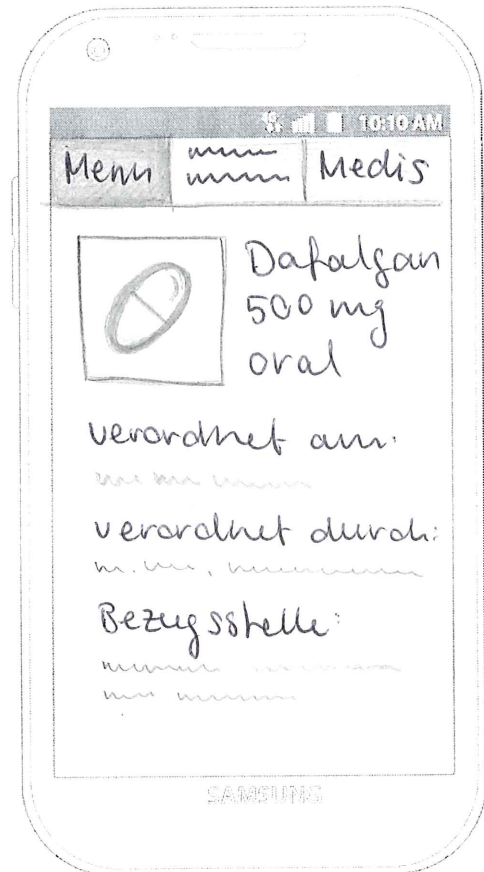 10:10 AM
Menu Medis
Dafalgan
500 mg
oral
verordnet am:
verordnet durch:
Bezugsstelle:
SAMSUNG